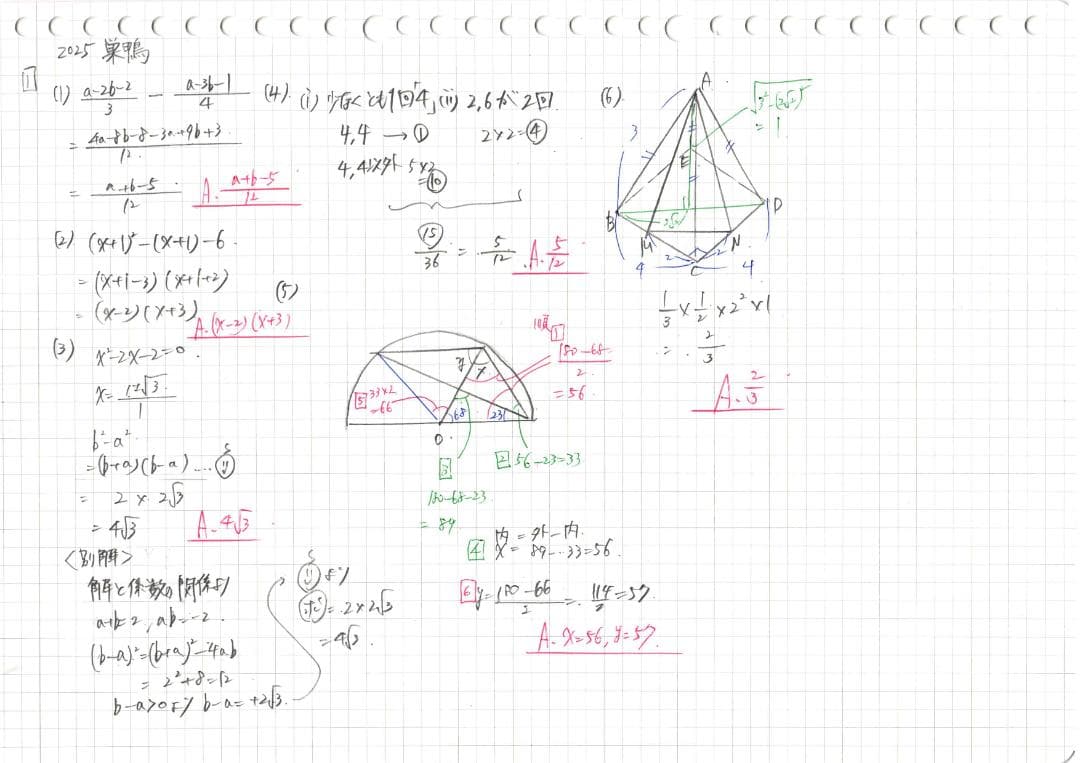 2025 巣鴨
1
(1) (a-2b-2)/3 - (a-3b-1)/4
= (4a-8b-8-3a+9b+3)/12
= (a+b-5)/12
A. (a+b-5)/12
(2) (x+1)²-(x+1)-6
= (x+1-3)(x+1+2)
= (x-2)(x+3)
A. (x-2)(x+3)
(3) x²-2x-2=0
x= (1±√3)/1
b²-a²
=(b+a)(b-a)....
= 2 × 2√3
= 4√3
A. 4√3
<別解>
解と係数の関係より
a+b=2, ab=-2
(b-a)²=(b+a)²-4ab
= 2²+8=12
b-a>0より b-a=+2√3
より
= 2×2√3
=4√3
(4) (i) 少なくとも1回「4」
4,4 → ①
4,4以外 5×2
=⑩
(ii) 2,6が2回
2×2=④
⑮/36 = 5/12
A. 5/12
(5)
y
x
O
68
23
1
(180-68)/2
=56
2 56-23=33
3
180-68-23
= 89
4 内 = 外-内
x = 89-33=56
5 33×2
=66
6 y= (180-66)/2 = 114/2 =57
A. x=56, y=57
(6)
A
B
C
D
E
M
N
3
4
4
2
2
2√2
√3²-(2√2)²
= 1
1/3 × 1/2 × 2² × 1
= 2/3
A. 2/3